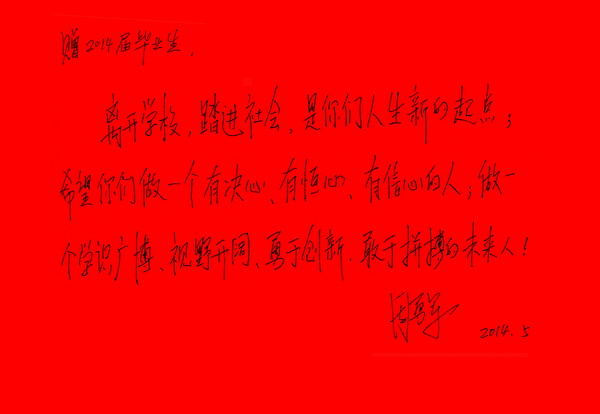 赠2014届毕业生.
离开学校,踏进社会,是你们人生新的起点;
希望你们做一个有决心、有恒心、有信心的人;做一
个学识广博、视野开阔、勇于创新、敢于拼搏的未来人!
2014.5